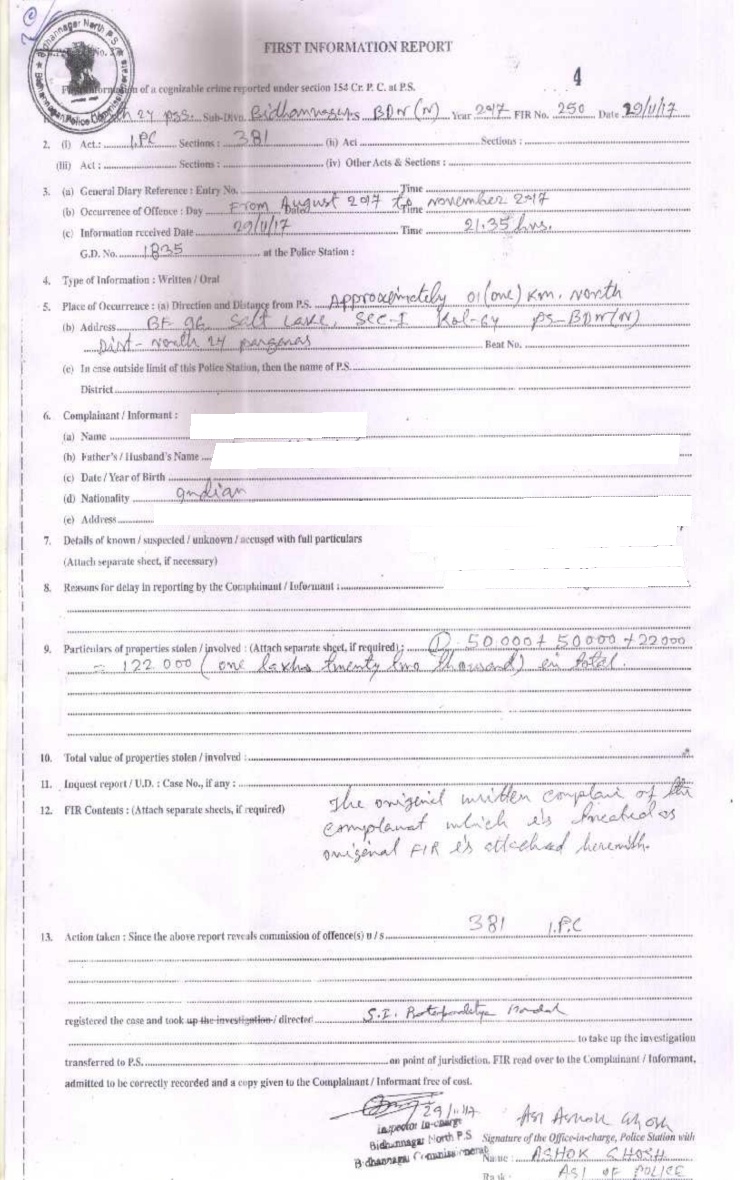 Bidhannagar North P.S.
FIRST INFORMATION REPORT
4
First Information of a cognizable crime reported under section 154 Cr. P. C. at P.S.
24 pgs. Sub-Divn. Bidhannagar P.S. BDN (N) Year 2017 FIR No. 250 Date 29/11/17
2. (i) Act.: I.PC Sections : 381 (ii) Act Sections :
(iii) Act : Sections : (iv) Other Acts & Sections :
3. (a) General Diary Reference : Entry No. Time
(b) Occurrence of Offence : Day From August 2017 to november 2017 Time
(c) Information received Date 29/11/17 Time 21.35 hrs.
G.D. No. 1835 at the Police Station :
4. Type of Information : Written / Oral
5. Place of Occurrence : (a) Direction and Distance from P.S. Approximately 01 (one) Km. north
(b) Address BF 96 Salt Lake, Sec-I Kol-64 PS-BDN(N)
Dist- North 24 parganas Beat No.
(c) In case outside limit of this Police Station, then the name of P.S.
District
6. Complainant / Informant :
(a) Name
(b) Father's / Husband's Name
(c) Date / Year of Birth
(d) Nationality Indian
(e) Address
7. Details of known / suspected / unknown / accused with full particulars
(Attach separate sheet, if necessary)
8. Reasons for delay in reporting by the Complainant / Informant :
9. Particulars of properties stolen / involved : (Attach separate sheet, if required) : ① 50.000 + 50000 + 22000
= 122 000 (one lakhs twenty two thousand) in total.
10. Total value of properties stolen / involved :
11. Inquest report / U.D. : Case No., if any :
12. FIR Contents : (Attach separate sheets, if required) The original written complain of the
complanat which is treated as
original FIR is attached herewith.
13. Action taken : Since the above report reveals commission of offence(s) u / s 381 I.P.C
registered the case and took up the investigation / directed S.I. Mondal
to take up the investigation
transferred to P.S. on point of jurisdiction. FIR read over to the Complainant / Informant,
admitted to be correctly recorded and a copy given to the Complainant / Informant free of cost.
29/11/17
Inspector In-charge
Bidhannagar North P.S
Bidhannagar Commissionerate
ASI Ashok Ghosh
Signature of the Office-in-charge, Police Station with
Name : ASHOK GHOSH
Rank : ASI OF POLICE